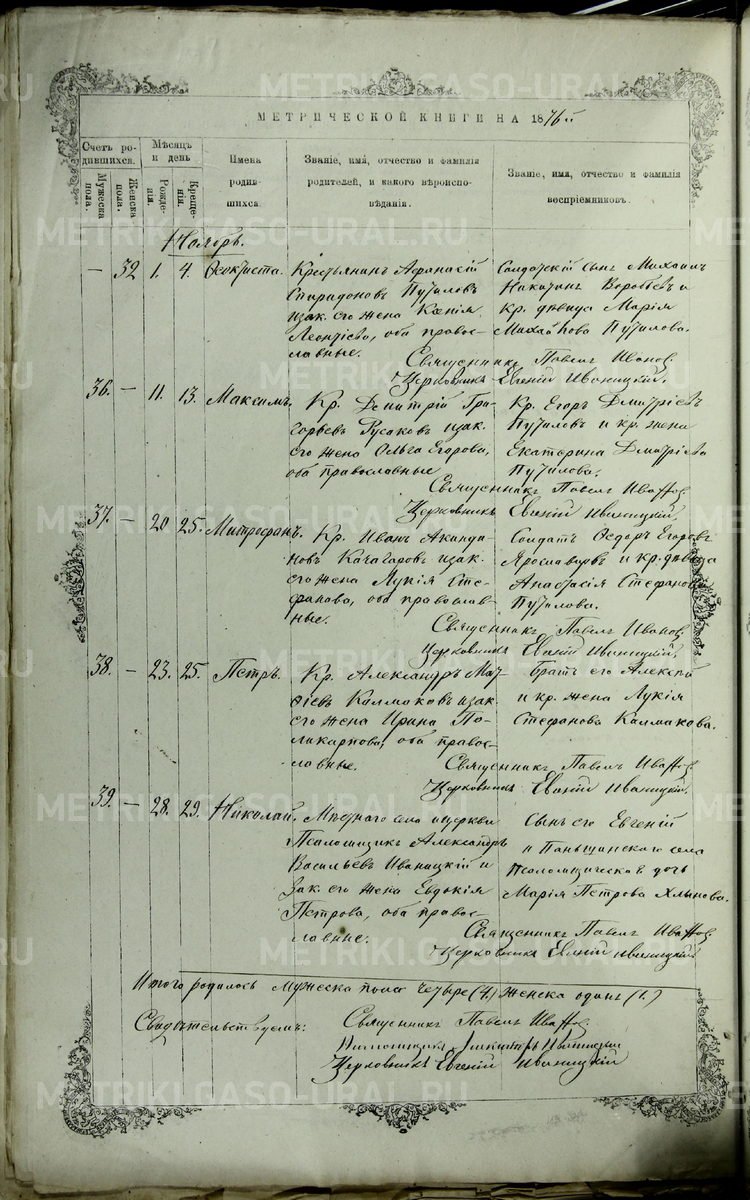 МЕТРИЧЕСКОЙ КНИГИ НА 1876й
Счетъ ро-
дившихся.
Мужеска
пола.
Женска
пола.
Мѣсяцъ
и день
Рожде-
нія.
Креще-
нія.
Имена
родив-
шихся.
Званіе, имя, отчество и фамилія
родителей, и какого вѣроиспо-
вѣданія.
Званіе, имя, отчество и фамилія
воспріемниковъ.
Ноябрь.
— 32 1. 4. Ѳеоктиста.
Крестьянинъ Аѳанасій
Спиридоновъ Путиловъ
изак. его жена Ксенія
Леонтіева, оба правос-
лавные.
Солдатскій сынъ Михаилъ
Никитинъ Воробьевъ и
Кр. дѣвица Марія
Михайлова Путилова.
Священникъ Павелъ Ивановъ
Церковникъ Евгеній Иваницкій.
36. — 11. 13. Максимъ.
Кр. Дмитрій Гри-
горьевъ Русаковъ изак.
его жена Ольга Егорова,
оба православные
Кр. Егоръ Дмитріевъ
Путиловъ и кр. жена
Екатерина Дмитріева
Путилова.
Священникъ Павелъ Ивановъ
Церковникъ Евгеній Иваницкій.
37. — 20 25. Митрофанъ.
Кр. Иванъ
новъ изак.
его жена Лукія Сте-
фанова, оба православ-
ные.
Солдатъ Ѳедоръ Егоровъ
Ярославцевъ и кр. дѣвица
Анастасія Стефанова
Путилова.
Священникъ Павелъ Ивановъ
Церковникъ Евгеній Иваницкій.
38. — 23. 25. Петръ.
Кр. Александръ Мат-
ѳіевъ Калмаковъ изак.
его жена Ирина По-
ликарпова, оба правос-
лавные.
Братъ его Алексѣй
и кр. жена Лукія
Стефанова Калмакова.
Священникъ Павелъ Ивановъ
Церковникъ Евгеній Иваницкій.
39. — 28. 29. Николай.
Мѣстнаго села церкви
Псаломщикъ Александръ
Васильевъ Иваницкій и
Зак. его жена Евдокія
Петрова, оба правос-
лавные.
Сынъ его Евгеній
и Паньшинскаго села
Псаломщическая дочь
Марія Петрова Хлынова.
Священникъ Павелъ Ивановъ
Церковникъ Евгеній Иваницкій
Итого родилось Мужеска пола четыре (4.) женска одинъ (1.)
Свидѣтельствуемъ:
Священникъ Павелъ Ивановъ
Псаломщикъ Александръ Иваницкій
Церковникъ Евгеній Иваницкій
METRIKI.GASO-URAL.RU